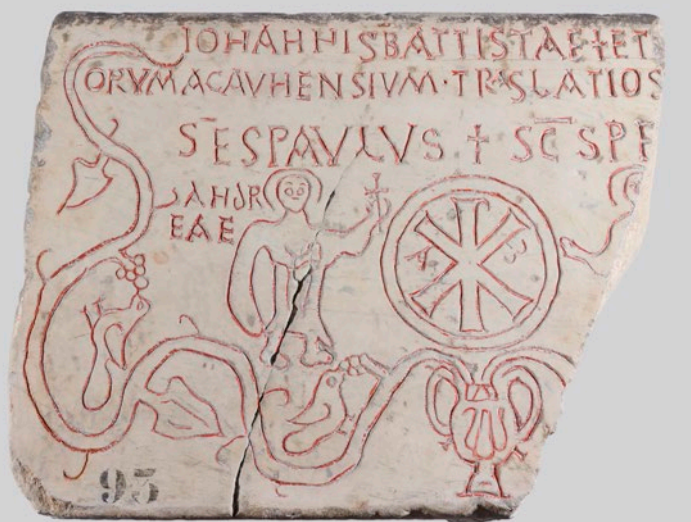 IOHAHHISBATTISTAE+ET
ORVMACAVHENSIVM·TRASLATIOS
SESPAVLVS + SC̅SPE
SAHDR
EAE
A Ꞷ
93